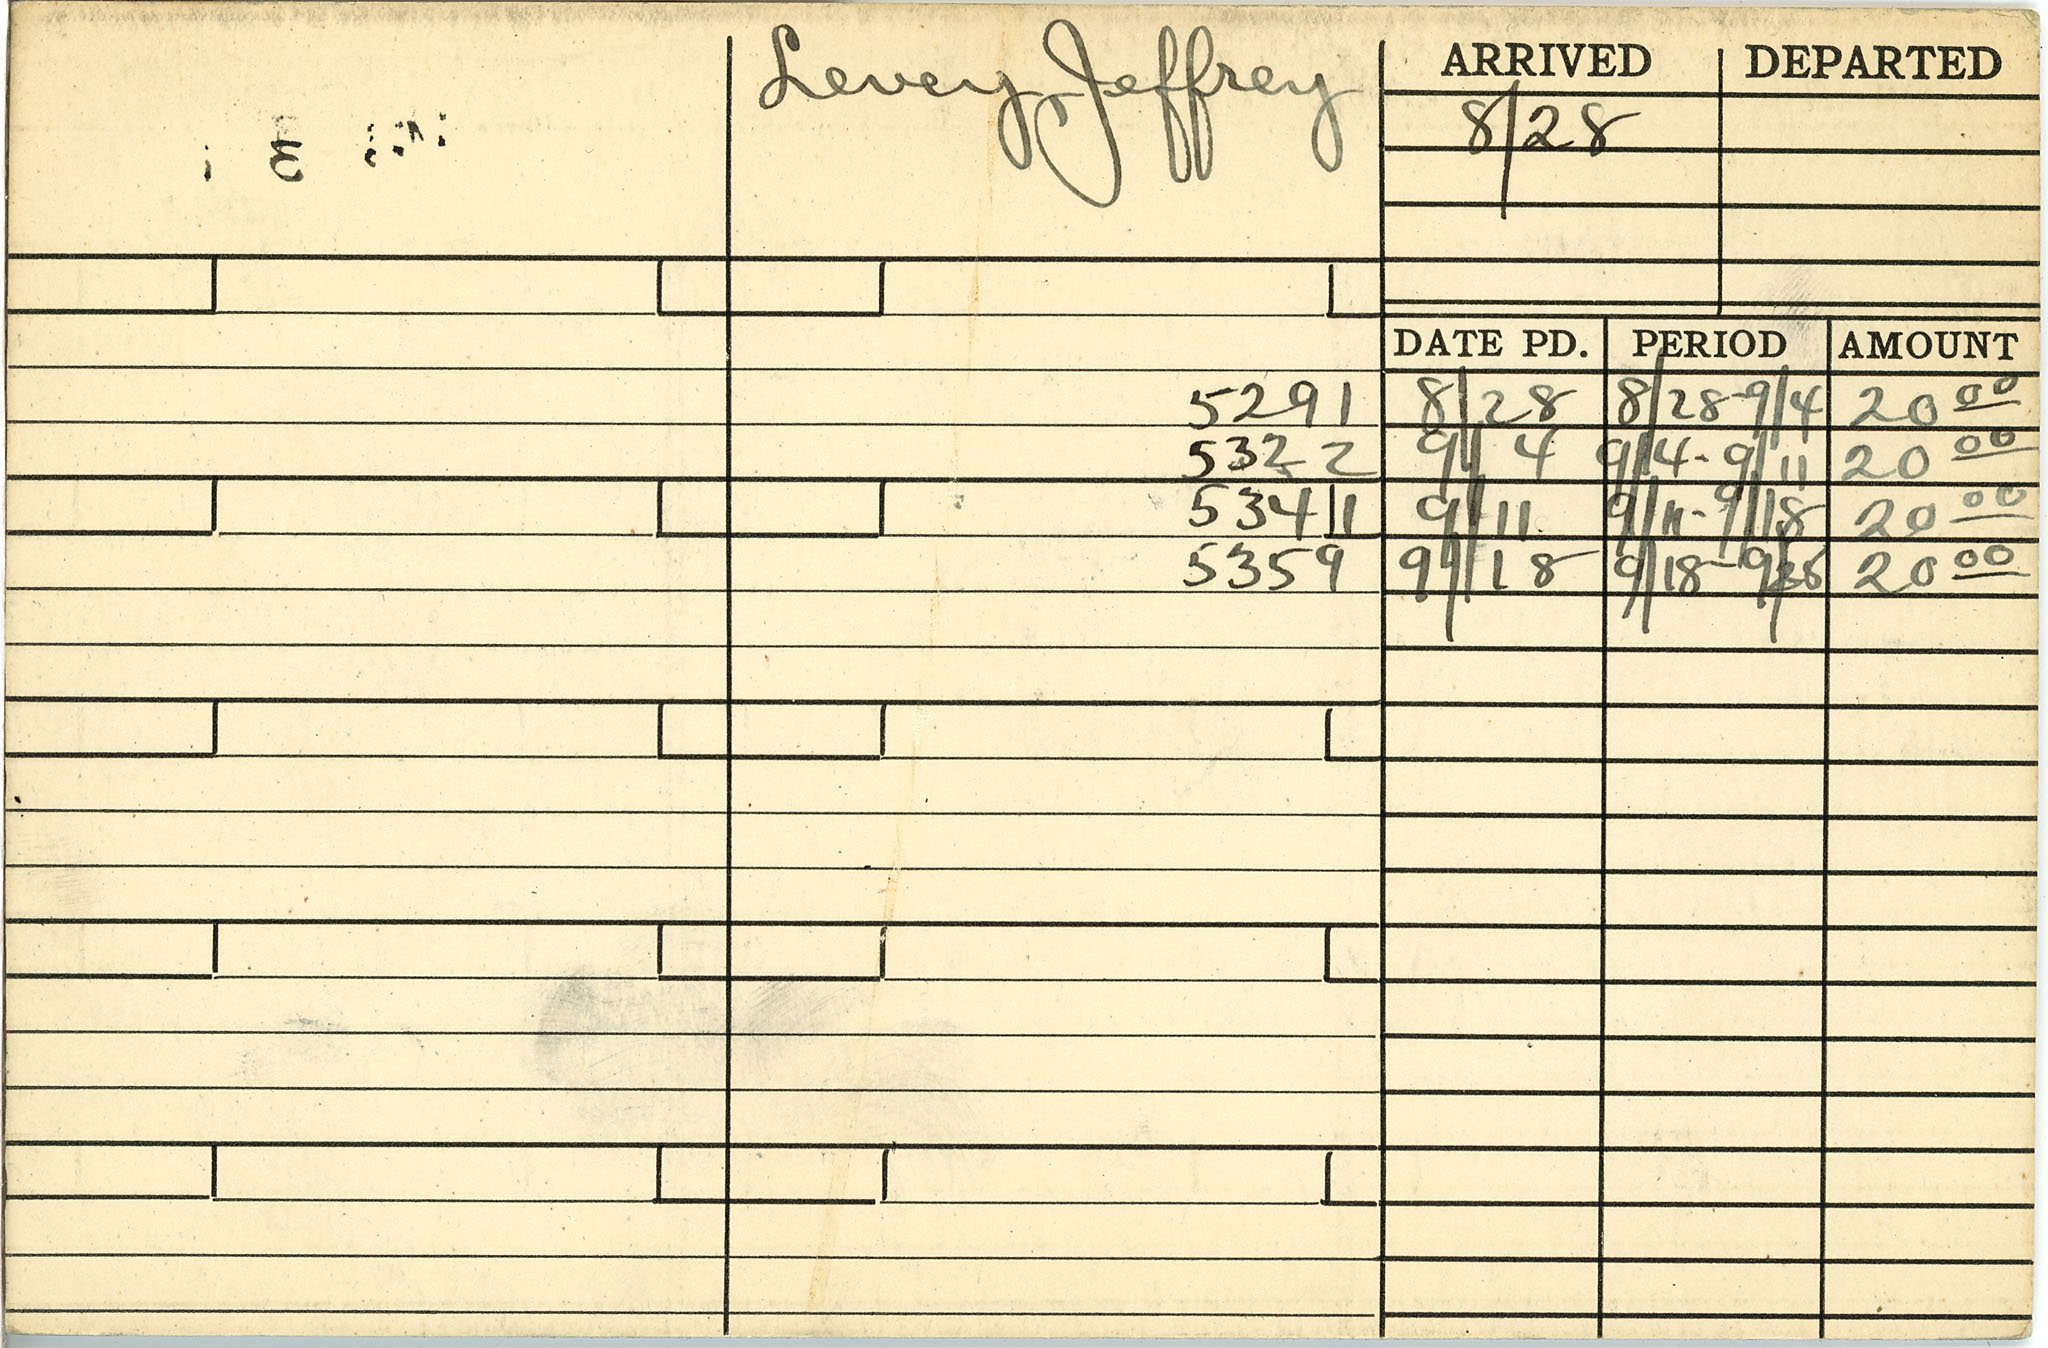 Levey, Jeffrey
ARRIVED DEPARTED
8/28
DATE PD. PERIOD AMOUNT
5291 8/28 8/28-9/4 20 00
5322 9/4 9/4-9/11 20 00
5341 9/11 9/11-9/18 20 00
5359 9/18 9/18-9/25 20 00